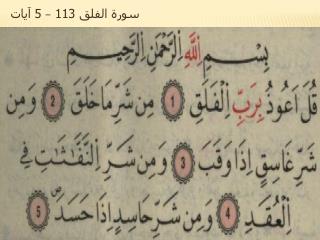 سورة الفلق 113 – 5 آيات
بِسْمِ اللّٰهِ الرَّحْمٰنِ الرَّحِيمِ
قُلْ اَعُوذُ بِرَبِّ الْفَلَقِ ﴿1﴾ مِن شَرِّ مَا خَلَقَ ﴿2﴾ وَمِن
شَرِّ غَاسِقٍ اِذَا وَقَبَ ﴿3﴾ وَمِن شَرِّ النَّفّٰثٰتِ فِي
الْعُقَدِ ﴿4﴾ وَمِن شَرِّ حَاسِدٍ اِذَا حَسَدَ ﴿5﴾